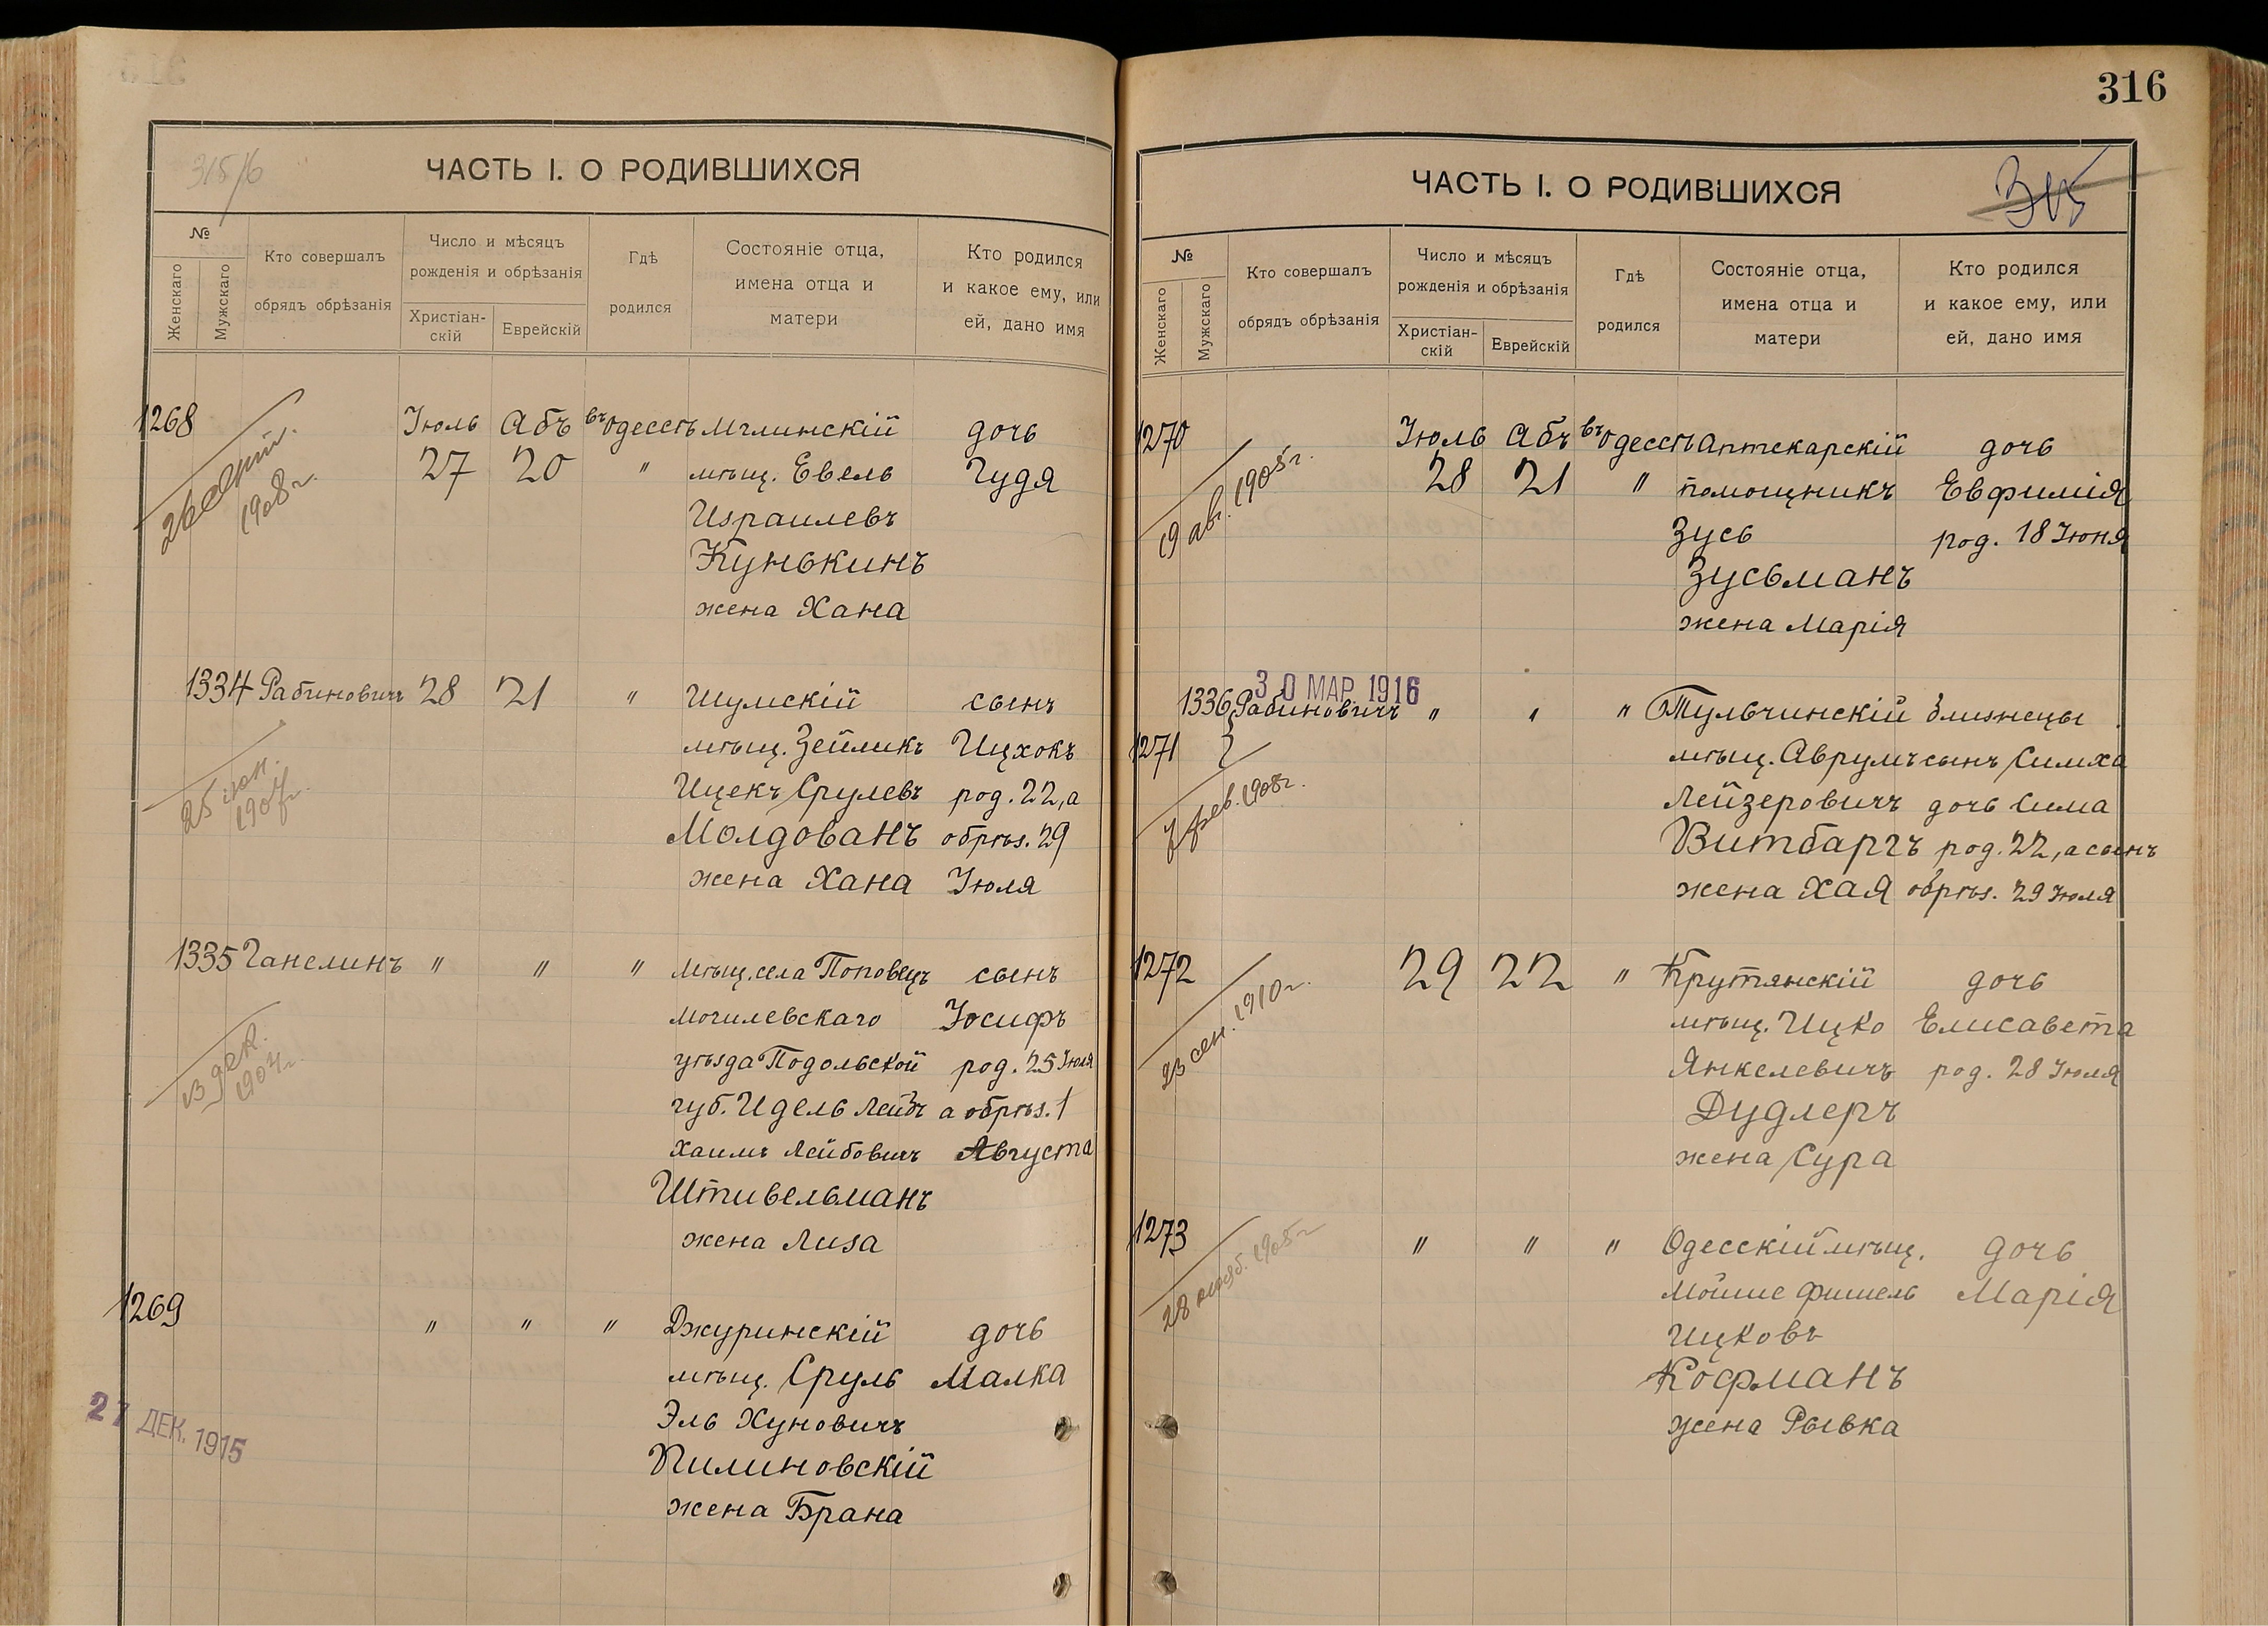 316
315/6
ЧАСТЬ I. О РОДИВШИХСЯ
№
Женскаго
Мужскаго
Кто совершалъ
обрядъ обрѣзанія
Число и мѣсяцъ
рожденія и обрѣзанія
Христіан-
скій
Еврейскій
Гдѣ
родился
Состояніе отца,
имена отца и
матери
Кто родился
и какое ему, или
ей, дано имя
1268 Іюль Абъ въ Одессѣ Мглинскій дочь
27 20 " мѣщ. Евель Гудя
Израилевъ
Кунькинъ
жена Хана
26
1908 г.
1334 Рабиновичъ 28 21 " Шумскій сынъ
мѣщ. Зейликъ Ицхокъ
Ицекъ Срулевъ род. 22, а
Молдованъ обрѣз. 29
жена Хана Іюля
25 іюн.
1907 г.
1335 Ганелинъ " " " мѣщ. села Поповецъ сынъ
Могилевскаго Іосифъ
уѣзда Подольской род. 25 Іюля
губ. Идель Лейбъ а обрѣз. 1
Хаимъ Лейбовичъ Августа
Штивельманъ
жена Лиза
13 дек.
1904 г.
1269 " " " Джуринскій дочь
мѣщ. Сруль Малка
Эль Хуновичъ
Пилиновскій
жена Брана
27 ДЕК. 1915
ЧАСТЬ I. О РОДИВШИХСЯ
315
№
Женскаго
Мужскаго
Кто совершалъ
обрядъ обрѣзанія
Число и мѣсяцъ
рожденія и обрѣзанія
Христіан-
скій
Еврейскій
Гдѣ
родился
Состояніе отца,
имена отца и
матери
Кто родился
и какое ему, или
ей, дано имя
1270 Іюль Абъ въ Одессѣ Аптекарскій дочь
28 21 " помощникъ Евфимія
Зусь род. 18 Іюня
Зусьманъ
жена Марія
19 авг. 1905 г.
30 МАР. 1916
1336 Рабиновичъ " " " Тульчинскій близнецы
1271 мѣщ. Аврумъ сынъ Симха
Лейзеровичъ дочь Сима
Витбаргъ род. 22, а сынъ
жена Хая обрѣз. 29 Іюля
7 фев. 1908 г.
1272 29 22 " Крутянскій дочь
мѣщ. Ицко Елисавета
Янкелевичъ род. 28 Іюля
Дудлеръ
жена Сура
23 сен. 1910 г.
1273 " " " Одесскій мѣщ. дочь
Мойше Фишель Марія
Ицковъ
Кофманъ
жена Рывка
28 1905 г.